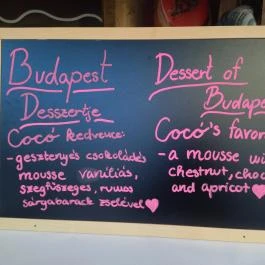 Budapest
Desszertje
Cocó kedvence:
-gesztenyés csokoládés
mousse vaníliás,
szegfűszeges, rumos
sárgabarack zselével
Dessert of
Budape
Cocó's favor
-a mousse wi
chestnut, choc
and apricot